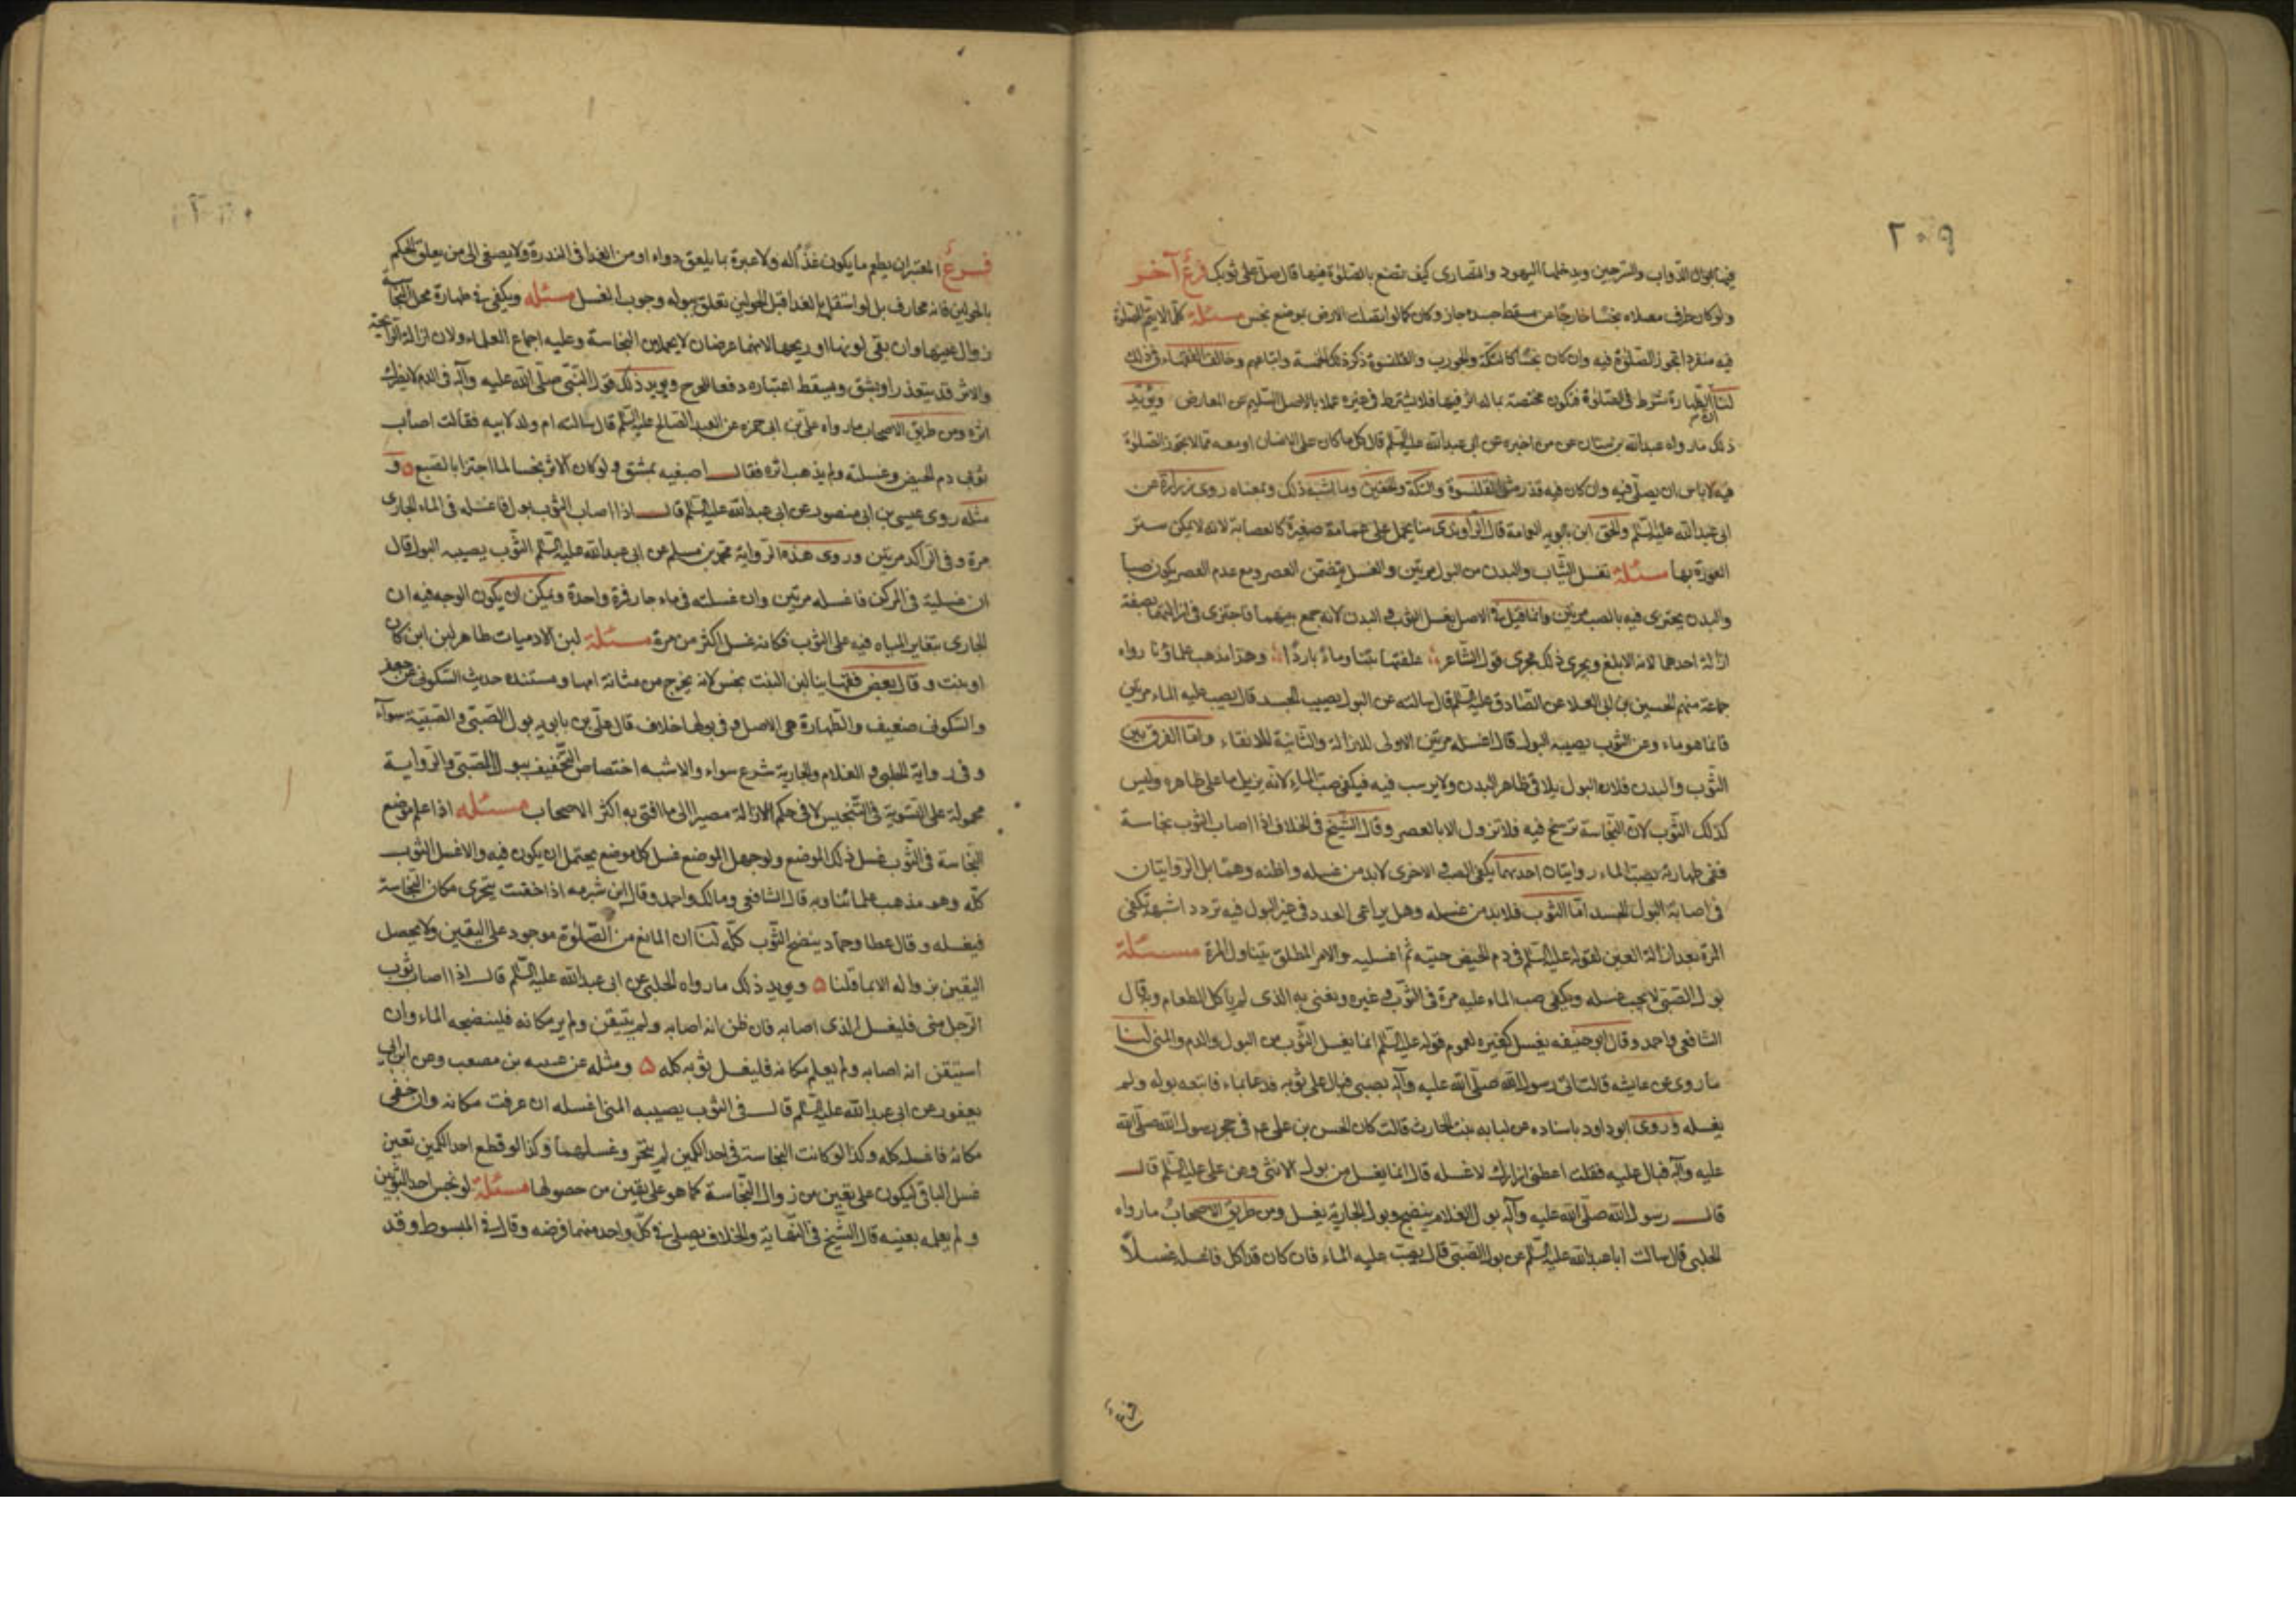 ٢٠٩
فيها ابوال الدواب والسرجين ويدخلها اليهود والنصارى كيف نصنع بالصلوة فيها قال صل على ثوبك فرع آخر
ولو كان طرف مصلاه نجسًا خارجًا عن مسقط جسده جاز وكان كما لو اتصلت الارض بموضع نجس مسئلة كلما لا يتم الصلوة
فيه منفردا تجوز الصلوة فيه وان كان نجسًا كالتكة والجورب والقلنسوة ذكر ذلك الخمسة واتباعهم وخالف الفقهاء في ذلك
لنا ان الطهارة شرط في الصلوة فتكون مختصة بما له اثر فيها فلا يشترط في غيره عملا بالاصل السليم عن المعارض ويؤيد
ذلك ما رواه عبدالله بن سنان عن من اخبره عن ابى عبدالله عليه السلم قال كل ما كان على الانسان او معه مما لا تجوز الصلوة
فيه لا باس ان يصلى فيه وان كان فيه قذر مثل القلنسوة والتكة والخفين وما اشبه ذلك وبمعناه روى زرارة عن
ابى عبدالله عليه السلم والحق ابن بابويه العمامة قال الراوندى منا يحمل على عمامة صغيرة كالعصابة لانه لا يمكن ستر
العورة بها مسئلة تغسل الثياب والبدن من البول مرتين والغسل يتضمن العصر ومع عدم العصر يكون صبا
والبدن يجتزى فيه بالصب مرتين وانما قيل في الاصل يغسل الثوب والبدن لانه جمع بينهما فاجتزى في ازالتهما بصفة
ازالة احدهما لانه الابلغ ويجرى ذلك مجرى قول الشاعر علفتها تبنا وماءً باردًا وهذا مذهب علماؤنا رواه
جماعة منهم الحسين بن ابى العلا عن الصادق عليه السلم قال سالته عن البول يصيب الجسد قال يصب عليه الماء مرتين
فانما هو ماء وعن الثوب يصيبه البول قال اغسله مرتين الاولى للازالة والثانية للانقاء واما الفرق بين
الثوب والبدن فلان البول يلاقى ظاهر البدن ولا يرسب فيه فيكفى صب الماء لانه يزيل ما على ظاهره وليس
كذلك الثوب لان النجاسة ترسخ فيه فلا تزول الا بالعصر وقال الشيخ في الخلاف اذا اصاب الثوب نجاسة
ففى طهارته بصب الماء روايتان احديهما يكفى الصب والاخرى لابد من غسله واظنه وهما بل الروايتان
في اصابة البول الجسد اما الثوب فلابد من غسله وهل يراعى العدد في غير البول فيه تردد اشبهه تكفى
المرة بعد ازالة العين لقوله عليه السلم في دم الحيض حتيه ثم اغسليه والامر المطلق يتناول المرة مسئلة
بول الصبى لا يجب غسله ويكفى صب الماء عليه مرة في الثوب وغيره ونعنى به الذى لم ياكل الطعام وبه قال
الشافعى واحمد وقال ابو حنيفه يغسل كغيره لعموم قوله عليه السلم انما يغسل الثوب من البول والدم والمنى لنا
ما روى عن عايشه قالت اتى رسول الله صلى الله عليه وآله بصبى فبال على ثوبه فدعا بماء فاتبعه بوله ولم
يغسله وروى ابو داود باسناده عن لبابه بنت الحارث قالت كان الحسن بن على ع م في حجر رسول الله صلى الله
عليه وآله فبال عليه فقلت اعطنى ازارك لاغسله قال انما يغسل من بول الانثى وعن على عليه السلم قال
قال رسول الله صلى الله عليه وآله بول الغلام ينضح وبول الجارية يغسل ومن طريق الاصحاب ما رواه
الحلبى قال سالت ابا عبدالله عليه السلم عن بول الصبى قال يصب عليه الماء فان كان قد اكل فاغسله غسلاً
فرع
فرع المعتبر ان يطعم ما يكون غذاء له ولا عبرة بما يلعق دواء او من الغذا في الندرة ولا يصغى الى من يعلق الحكم
بالحولين فانه مجازف بل لو استقل بالغذا قبل الحولين تعلق ببوله وجوب الغسل مسئله ويكفى في طهارة محل النجاسة
زوال عينها وان بقى لونها او ريحها لانهما عرضان لا يحملان النجاسة وعليه اجماع العلماء ولان ازالة الرايحة
والاثر قد يتعذر او يشق ويسقط اعتباره دفعا للحرج ويويد ذلك قول النبى صلى الله عليه وآله في الدم لا يضرك
اثره ومن طريق الاصحاب ما رواه على بن ابى حمزه عن العبد الصالح عليه السلم قال سالته ام ولد لابيه فقالت اصاب
ثوبى دم الحيض وغسلته ولم يذهب اثره فقال اصبغيه بمشق ولو كان الاثر نجسا لما اجتزا بالصبغ ٥ و
مثله روى عيسى بن ابى منصور عن ابى عبدالله عليه السلم قال اذا اصاب الثوب بول فاغسله في الماء الجارى
مرة وفى الراكد مرتين وروى هذه الرواية محمد بن مسلم عن ابى عبدالله عليه السلم الثوب يصيبه البول قال
ان غسلته في المركن فاغسله مرتين وان غسلته في ماء جار فمرة واحدة ويمكن ان يكون الوجه فيه ان
الجارى يتغاير المياه فيه على الثوب فكانه غسل اكثر من مرة مسئلة لبن الادميات طاهر لبن ابن كان
او بنت وقال بعض فقهاينا لبن البنت نجس لانه يخرج من مثانة امها ومستنده حديث السكونى عن جعفر
والسكونى ضعيف والطهارة هى الاصل وفى بولها خلاف قال على بن بابويه بول الصبى والصبية سوآء
وفى رواية الحلبى والغلام والجارية شرع سواء والاشبه اختصاص التخفيف ببول الصبى والرواية
محمولة على التسوية في التنجيس لا في حكم الازالة مصيرا الى ما افتى به اكثر الاصحاب مسئله اذا علم موضع
النجاسة في الثوب غسل ذلك الموضع ولو جهل الموضع غسل كل موضع يحتمل ان يكون فيه والا غسل الثوب
كله وهو مذهب علمائنا وبه قال الشافعى ومالك واحمد وقال ابن شبرمه اذا خفيت يتحرى مكان النجاسة
فيغسله وقال عطا وحماد ينضح الثوب كله لنا ان المانع من الصلوة موجود على اليقين ولا يحصل
اليقين بزواله الا بما قلنا ٥ ويويد ذلك ما رواه الحلبى عن ابى عبدالله عليه السلم قال اذا اصاب ثوب
الرجل منى فليغسل الذى اصابه فان ظن انه اصابه ولم يتيقن ولم ير مكانه فلينضحه الماء وان
استيقن انه اصابه ولم يعلم مكانه فليغسل ثوبه كله ٥ ومثله عن عنبسه بن مصعب وعن ابن ابى
يعفور عن ابى عبدالله عليه السلم قال في الثوب يصيبه المنى اغسله ان عرفت مكانه وان خفى
مكانه فاغسله كله وكذا لو كانت النجاسة في احد الكمين لم يتحر وغسلهما وكذا لو قطع احد الكمين تعين
غسل الباقى ليكون على يقين من زوال النجاسة كما هو على يقين من حصولها مسئلة لو نجس احد الثوبين
ولم يعلمه بعينه قال الشيخ في النهاية والخلاف يصلى في كل واحد منهما فرضه وقال في المبسوط وقد